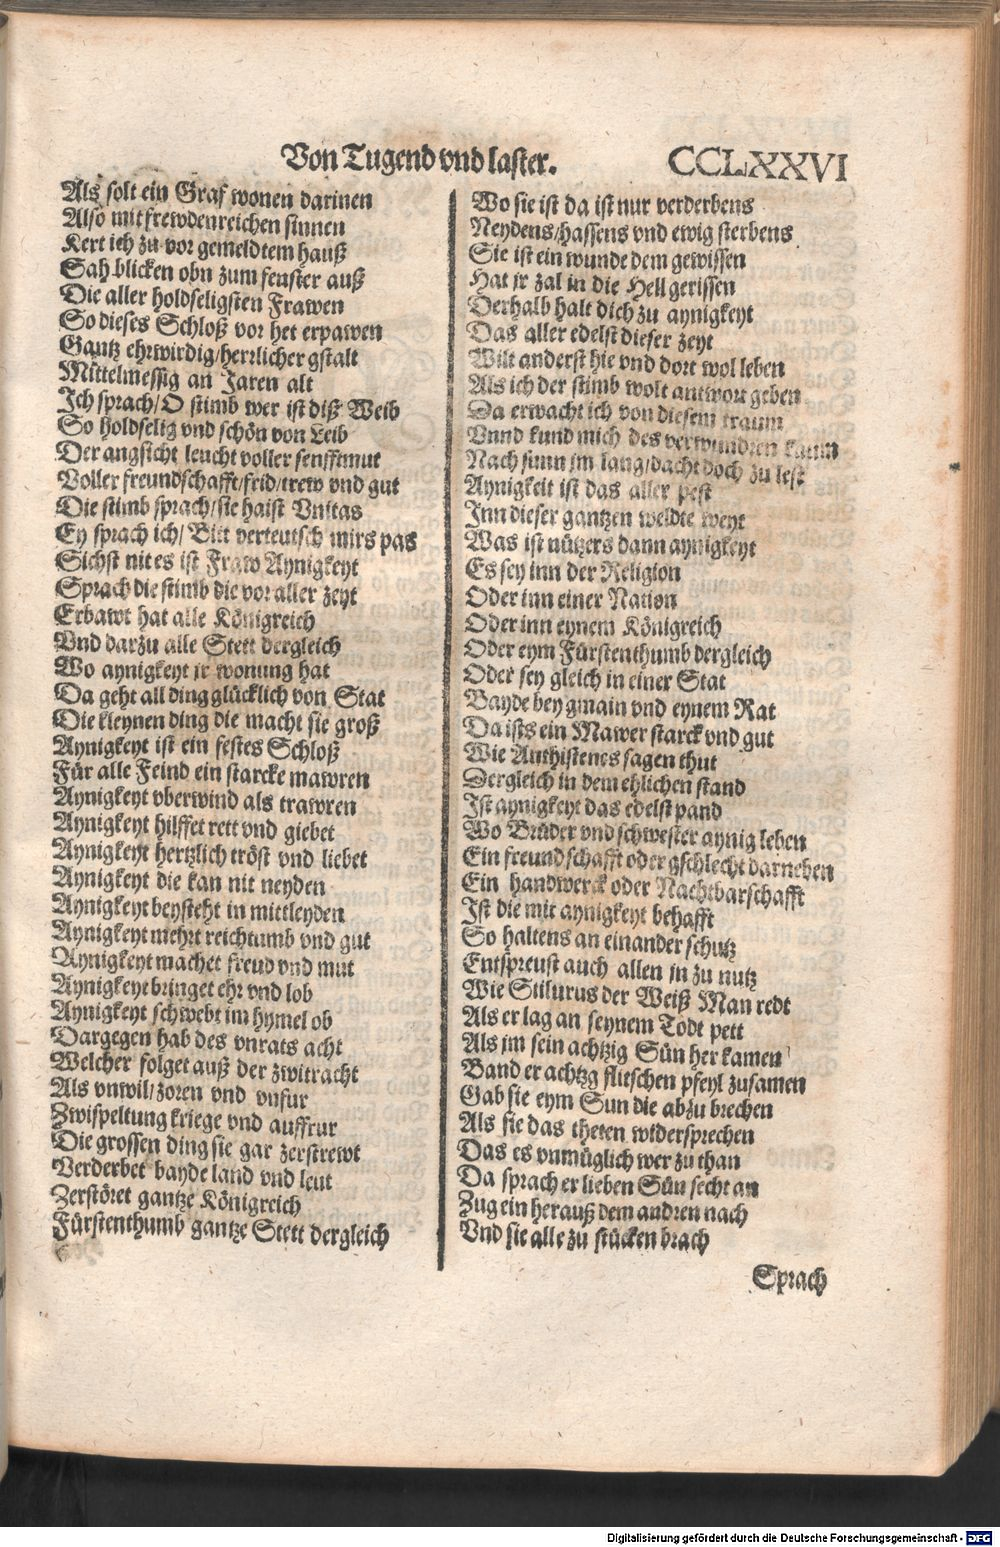 Von Tugend vnd laster.
CCLXXVI
Als solt ein Graf wonen darinen
Also mit frewdenreichen sinnen
Kert ich zu vor gemeldtem hauß
Sah blicken obn zum fenster auß
Die aller holdseligsten Frawen
So dieses Schloß vor het erpawen
Gantz ehrwirdig/herrlicher gstalt
Mittelmessig an Jaren alt
Ich sprach/O stimb wer ist diß Weib
So holdselig vnd schön von Leib
Der angsicht leucht voller senfftmut
Voller freundschafft/frid/trew vnd gut
Die stimb sprach/sie haist Vnitas
Ey sprach ich/ Bitt verteutsch mirs pas
Sichst nit es ist Fraw Aynigkeyt
Sprach die stimb die vor aller zeyt
Erbawt hat alle Königreich
Vnd darzu alle Stett dergleich
Wo aynigkeyt jr wonung hat
Da geht all ding glücklich von Stat
Die kleynen ding die macht sie groß
Aynigkeyt ist ein festes Schloß
Für alle Feind ein starcke mawren
Aynigkeyt vberwind als trawren
Aynigkeyt hilffet rett vnd giebet
Aynigkeyt hertzlich tröst vnd liebet
Aynigkeyt die kan nit neyden
Aynigkeyt beysteht in mittleyden
Aynigkeyt mehrt reichtumb vnd gut
Aynigkeyt machet freud vnd mut
Aynigkeyt bringet ehr vnd lob
Aynigkeyt schwebt im hymel ob
Dargegen hab des vnrats acht
Welcher folget auß der zwitracht
Als vnwil/zoren vnd vnfur
Zwispeltung kriege vnd auffrur
Die grossen ding sie gar zerstrewt
Verderbet bayde land vnd leut
Zerstöret gantze Königreich
Fürstenthumb gantze Stett dergleich
Wo sie ist da ist nur verderbens
Neydens/hassens vnd ewig sterbens
Sie ist ein wunde dem gewissen
Hat jr zal in die Hell gerissen
Derhalb halt dich zu aynigkeyt
Das aller edelst dieser zeyt
Wilt anderst hie vnd dort wol leben
Als ich der stimb wolt antwort geben
Da erwacht ich von diesem traum
Vnnd kund mich des verwundren kaum
Nach sunn jm lang/dacht doch zu lest
Aynigkeit ist das aller pest
Inn dieser gantzen weldte weyt
Was ist nützers dann aynigkeyt
Es sey inn der Religion
Oder inn einer Nation
Oder inn eynem Königreich
Oder eym Fürstenthumb dergleich
Oder sey gleich in einer Stat
Bayde bey gmain vnd eynem Rat
Da ists ein Mawer starck vnd gut
Wie Anthistenes sagen thut
Dergleich in dem ehlichen stand
Ist aynigkeyt das edelst pand
Wo Brüder vnd schwester aynig leben
Ein freundschafft oder gschlecht darneben
Ein handwerck oder Nachtbarschafft
Ist die mit aynigkeyt behafft
So haltens an einander schutz
Entspreust auch allen jn zu nutz
Wie Stilurus der Weiß Man redt
Als er lag an seynem Todt pett
Als jm sein achtzig Sün her kamen
Band er achtzg flitschen pfeyl zusamen
Gab sie eym Sun die abzu brechen
Als sie das theten widersprechen
Das es vnmüglich wer zu than
Da sprach er lieben Sün secht an
Zug ein herauß dem andren nach
Vnd sie alle zu stücken brach
Sprach
Digitalisierung gefördert durch die Deutsche Forschungsgemeinschaft - DFG